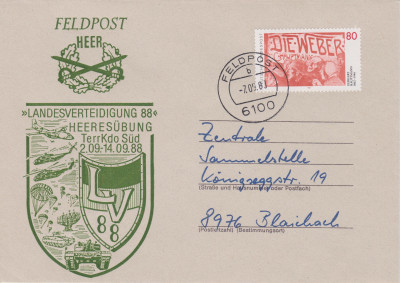 FELDPOST
HEER
»LANDESVERTEIDIGUNG 88«
HEERESÜBUNG
TerrKdo Süd
2.09-14.09.88
LV
88
DIE WEBER
80
FELDPOST
b
-7.09.88
6100
Zentrale
Sammelstelle
Königseggstr. 19
(Straße und Hausnummer oder Postfach)
8976 Blaichach
(Postleitzahl) (Bestimmungsort)